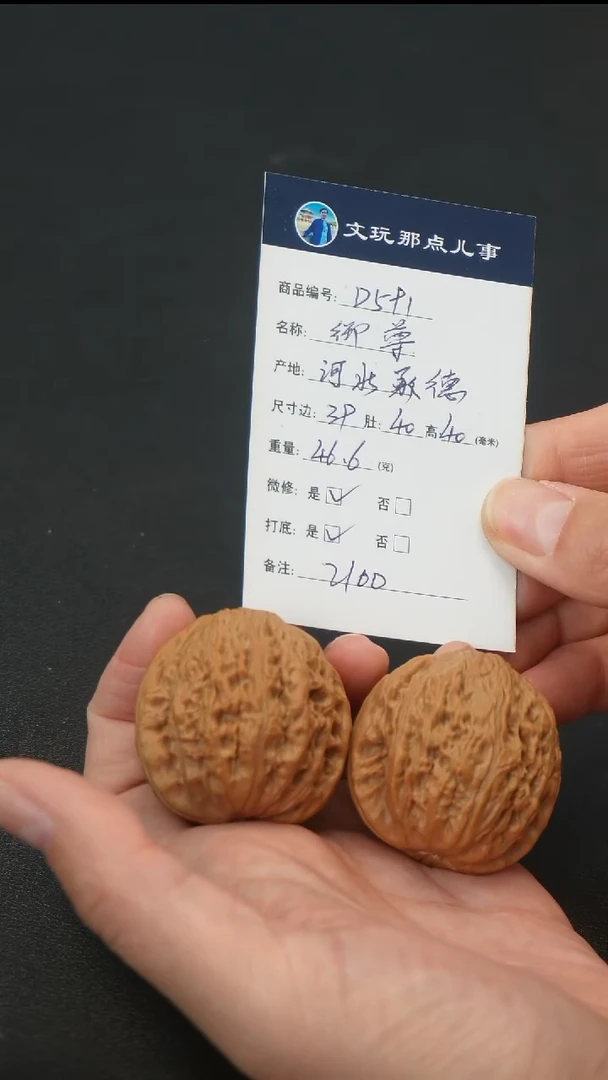 文玩那点儿事
商品编号: D591
名称: 御尊
产地: 河北承德
尺寸边: 39 肚: 40 高 40 (毫米)
重量: 46.6 (克)
微修: 是 ☑ 否 □
打底: 是 ☑ 否 □
备注: 2100